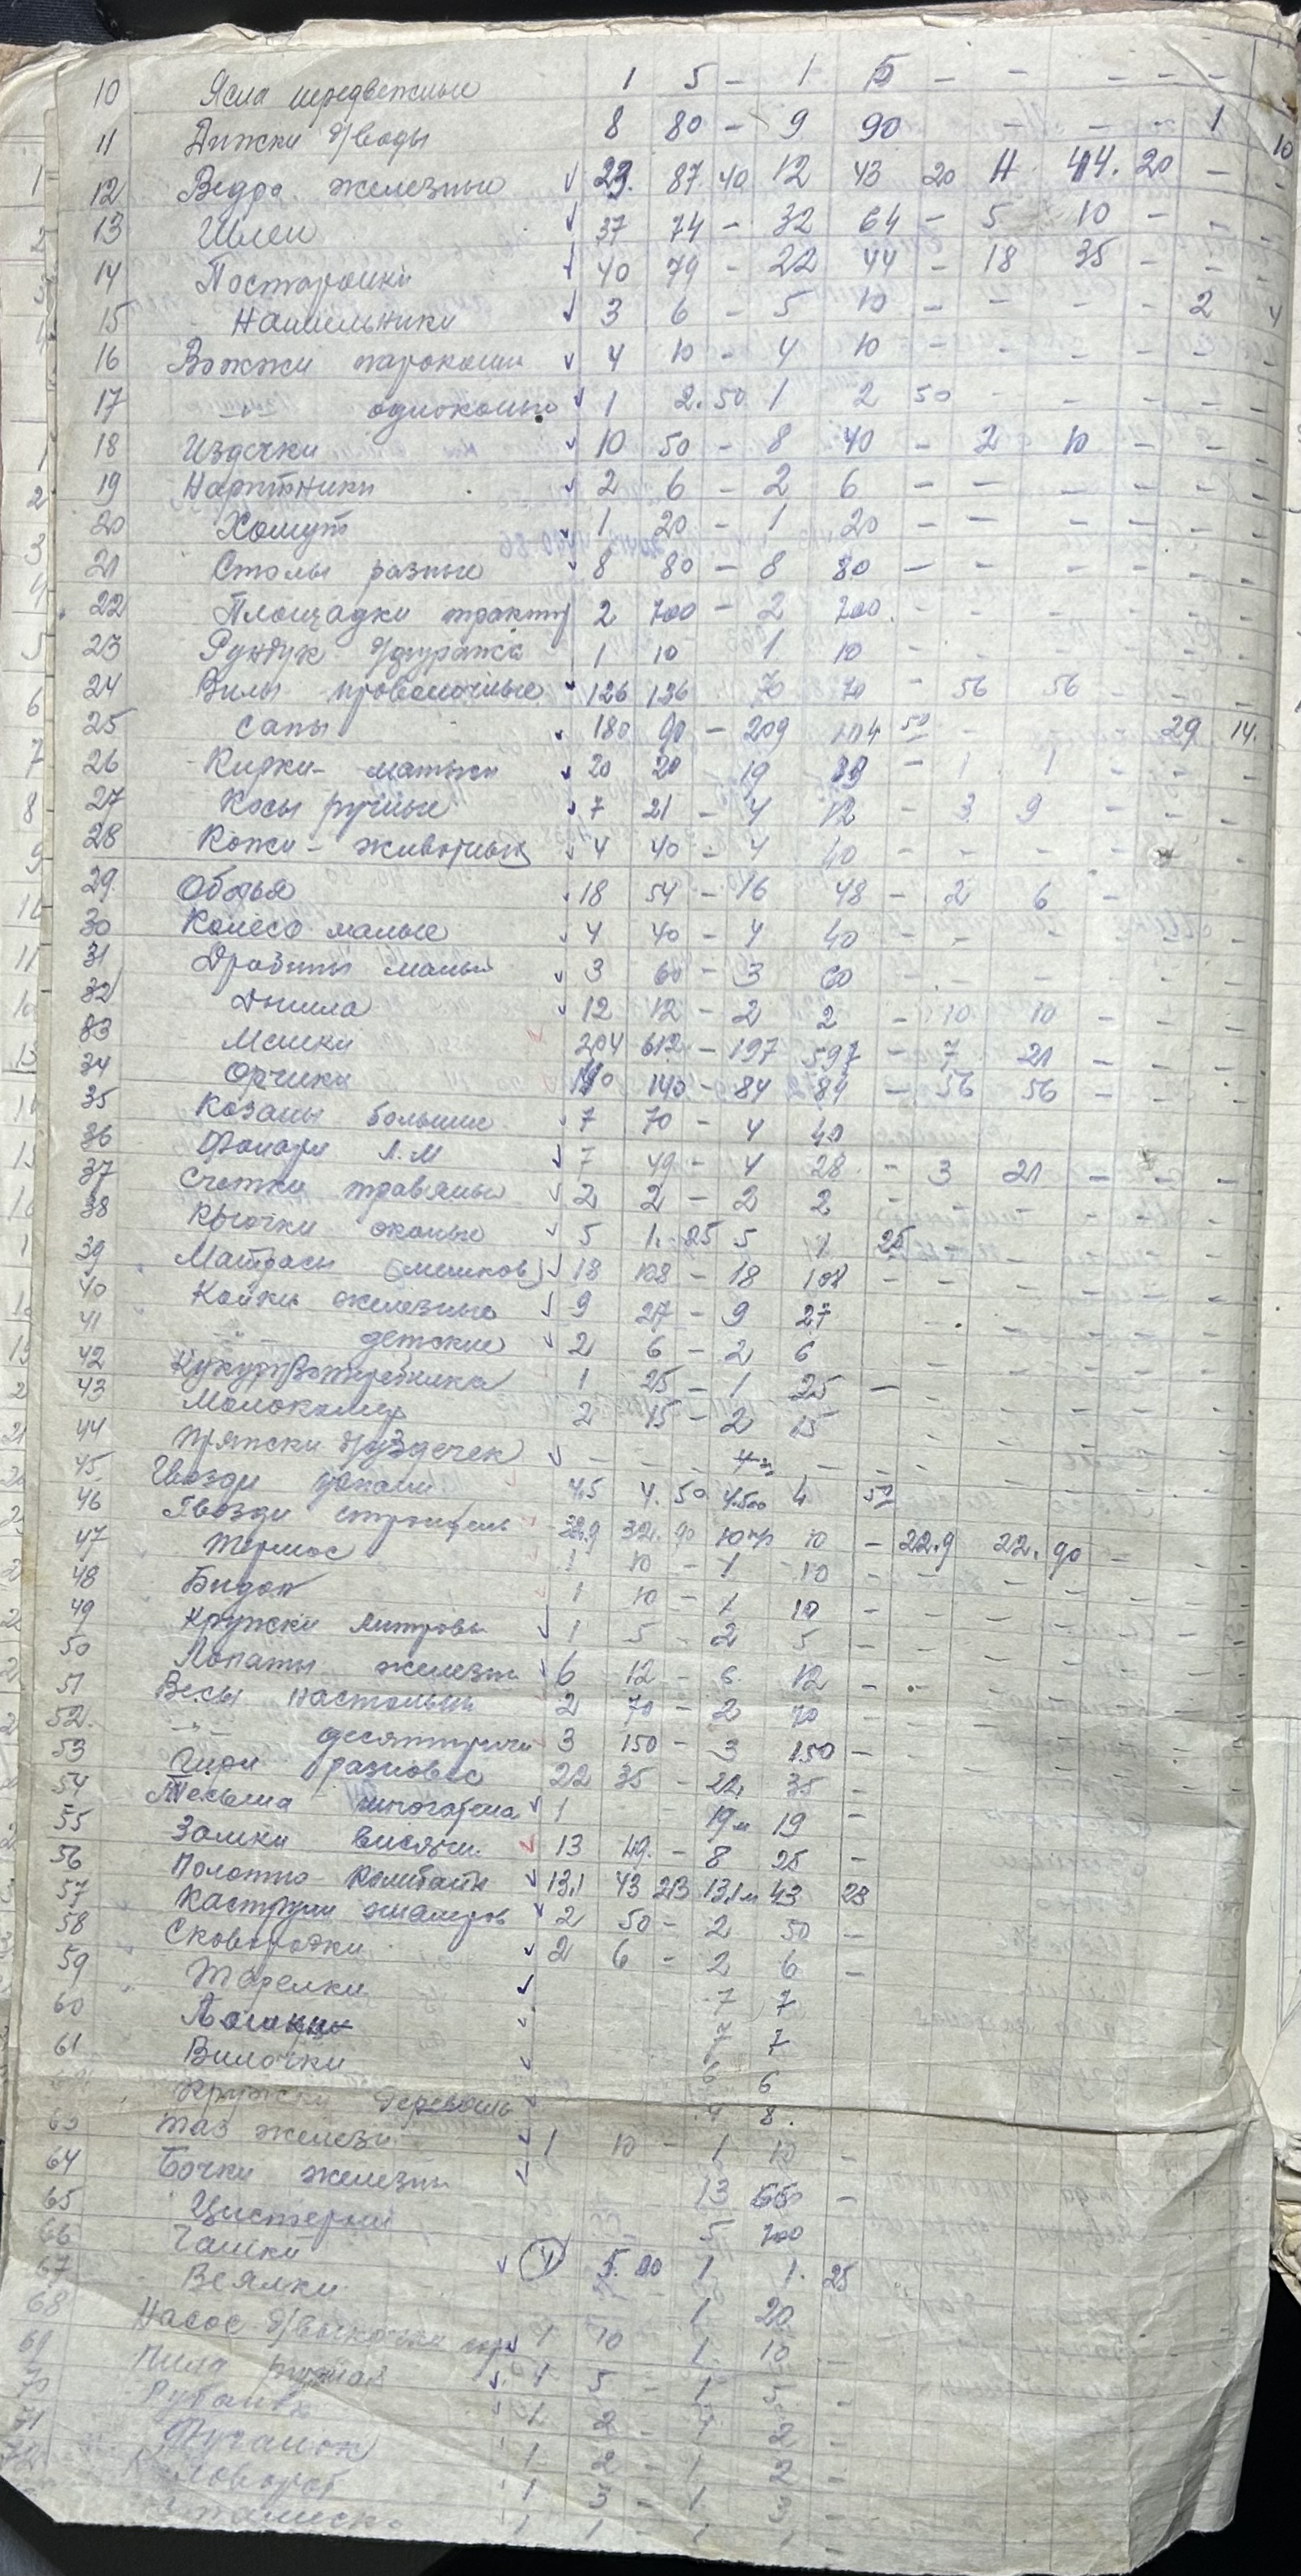 10 Ясла передвежные 1 5 - 1 5 - - - - -
11 Дижки д/воды 8 80 - 9 90 - - - 1 10
12 Ведра железные 23. 87. 40 12 43 20 11 44. 20 - -
13 Шлеи 37 74 - 32 64 - 5 10 - - -
14 Посторонки 40 79 - 22 44 - 18 35 - - -
15 Нашильники 3 6 - 5 10 - - - - 2 4
16 Вожжи пароконн 4 10 - 4 10 - - - - - -
17 -"- одноконные 1 2.50 1 2 50 - - - - -
18 Уздечки 10 50 - 8 40 - 2 10 - - -
19 Нарытники 2 6 - 2 6 - - - - - -
20 Хомут 1 20 - 1 20 - - - - - -
21 Столы разные 8 80 - 8 80 - - - - - -
22 Площадки тракт 2 700 - 2 700 - - - - - -
23 Рундук д/фуража 1 10 1 10 - - - - - -
24 Вилы проволочные 126 126 70 70 - 56 56 - - -
25 Сапы 180 90 - 209 104 50 - - - 29 14.
26 Кирки-матыги 20 20 - 19 19 - 1 1 - - -
27 Косы ручные 7 21 - 4 12 - 3 9 - - -
28 Кожи-животных 4 40 - 4 40 - - - - -
29 Ободья 18 54 - 16 48 - 2 6 -
30 Колесо малые 4 40 - 4 40 - - - - - -
31 Драбины малые 3 60 - 3 60 - - - - -
32 Дышла 12 12 - 2 2 - 10 10 - - -
33 Мешки 204 612 - 197 597 - 7 21 - - -
34 Орчики 140 140 - 84 84 - 56 56 - - -
35 Козаны большие 7 70 - 4 40
36 Фонари Л.М 7 49 - 4 28 - 3 21 - - -
37 Счетки травяные 2 2 - 2 2 - - - - - -
38 Крючки оконые 5 1. 25 5 1 25 - - - - -
39 Матрасы (мешков) 18 108 - 18 108 - - - - - -
40 Койки железные 9 27 - 9 27 - - - - -
41 -"- детские 2 6 - 2 6 - - - - - -
42 1 25 - 1 25 - - - - - -
43 Молокомер 2 15 - 2 15 - - - - -
44 Пряжки д/уздечек - - - - - -
45 Гвозди 4,5 4. 50 4.500 4 50
46 Гвозди строитель 32,9 32. 90 10кг 10 - 22.9 22. 90 - - -
47 Термос 1 10 - 1 10 - - - - - -
48 Бидон 1 10 - 1 10 - - - - - -
49 Кружки литровы 1 5 - 2 5 - - - - - -
50 Лопаты железн 6 12 - 6 12 - - - - - -
51 Весы настольн 2 70 - 2 70 - - - - - -
52. -"- десятиричн 3 150 - 3 150 - - - - - -
53 Гири разновес 22 35 - 22 35 - - - - - -
54 Тесьма 1 19м 19 -
55 Замки висячи. 13 49. - 8 25 -
56 Полотно комбайн 13,1 43 23 13,1м 43 23
57 Каструли 2 50 - 2 50 -
58 Сковородки 2 6 - 2 6 -
59 Тарелки 7 7
60 7 7
61 Вилочки 6 6
Кружки 4 8.
63 Таз железн. 1 10 - 1 10 -
64 Бочки железн 13 -
65 Цистерны 5 700
66 Чашки 4 5. 00 1 1. 25
67 Веялки 1 20
68 Насос д/выкачки 1 10 1 10 -
69 Пила ручная 1 5 - 1 5 -
70 Рубанк 1 2 - 1 2 -
71 Фуганок 1 2 - 1 2 -
Коловорот 1 3 - 1 3 -
1 1 - 1 1 -